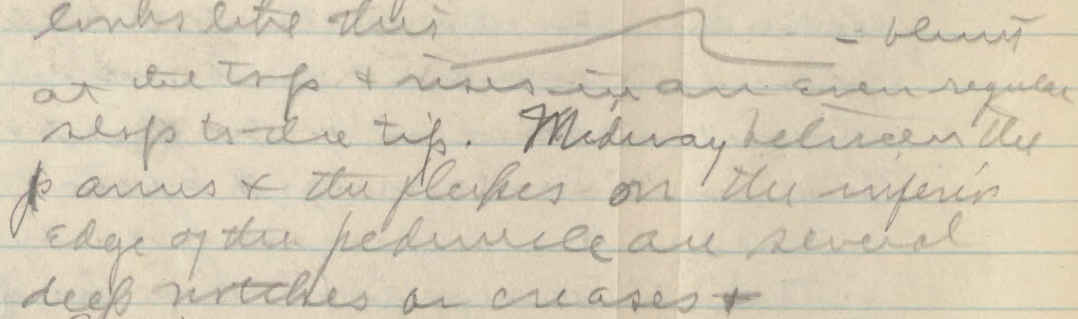 looks like this - blunt
at the top & rises in an even regular
slope to the tip. Midway between the
anus & the flukes on the inferior
edge of the peduncle are several
deep notches or creases &